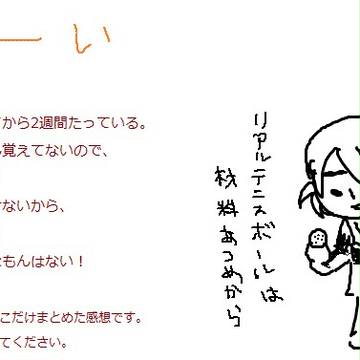 ーい
から2週間たっている。
覚えてないので、
ないから、
もんはない！
こだけまとめた感想です。
てください。
リアルテニスボールは
材料あつめから